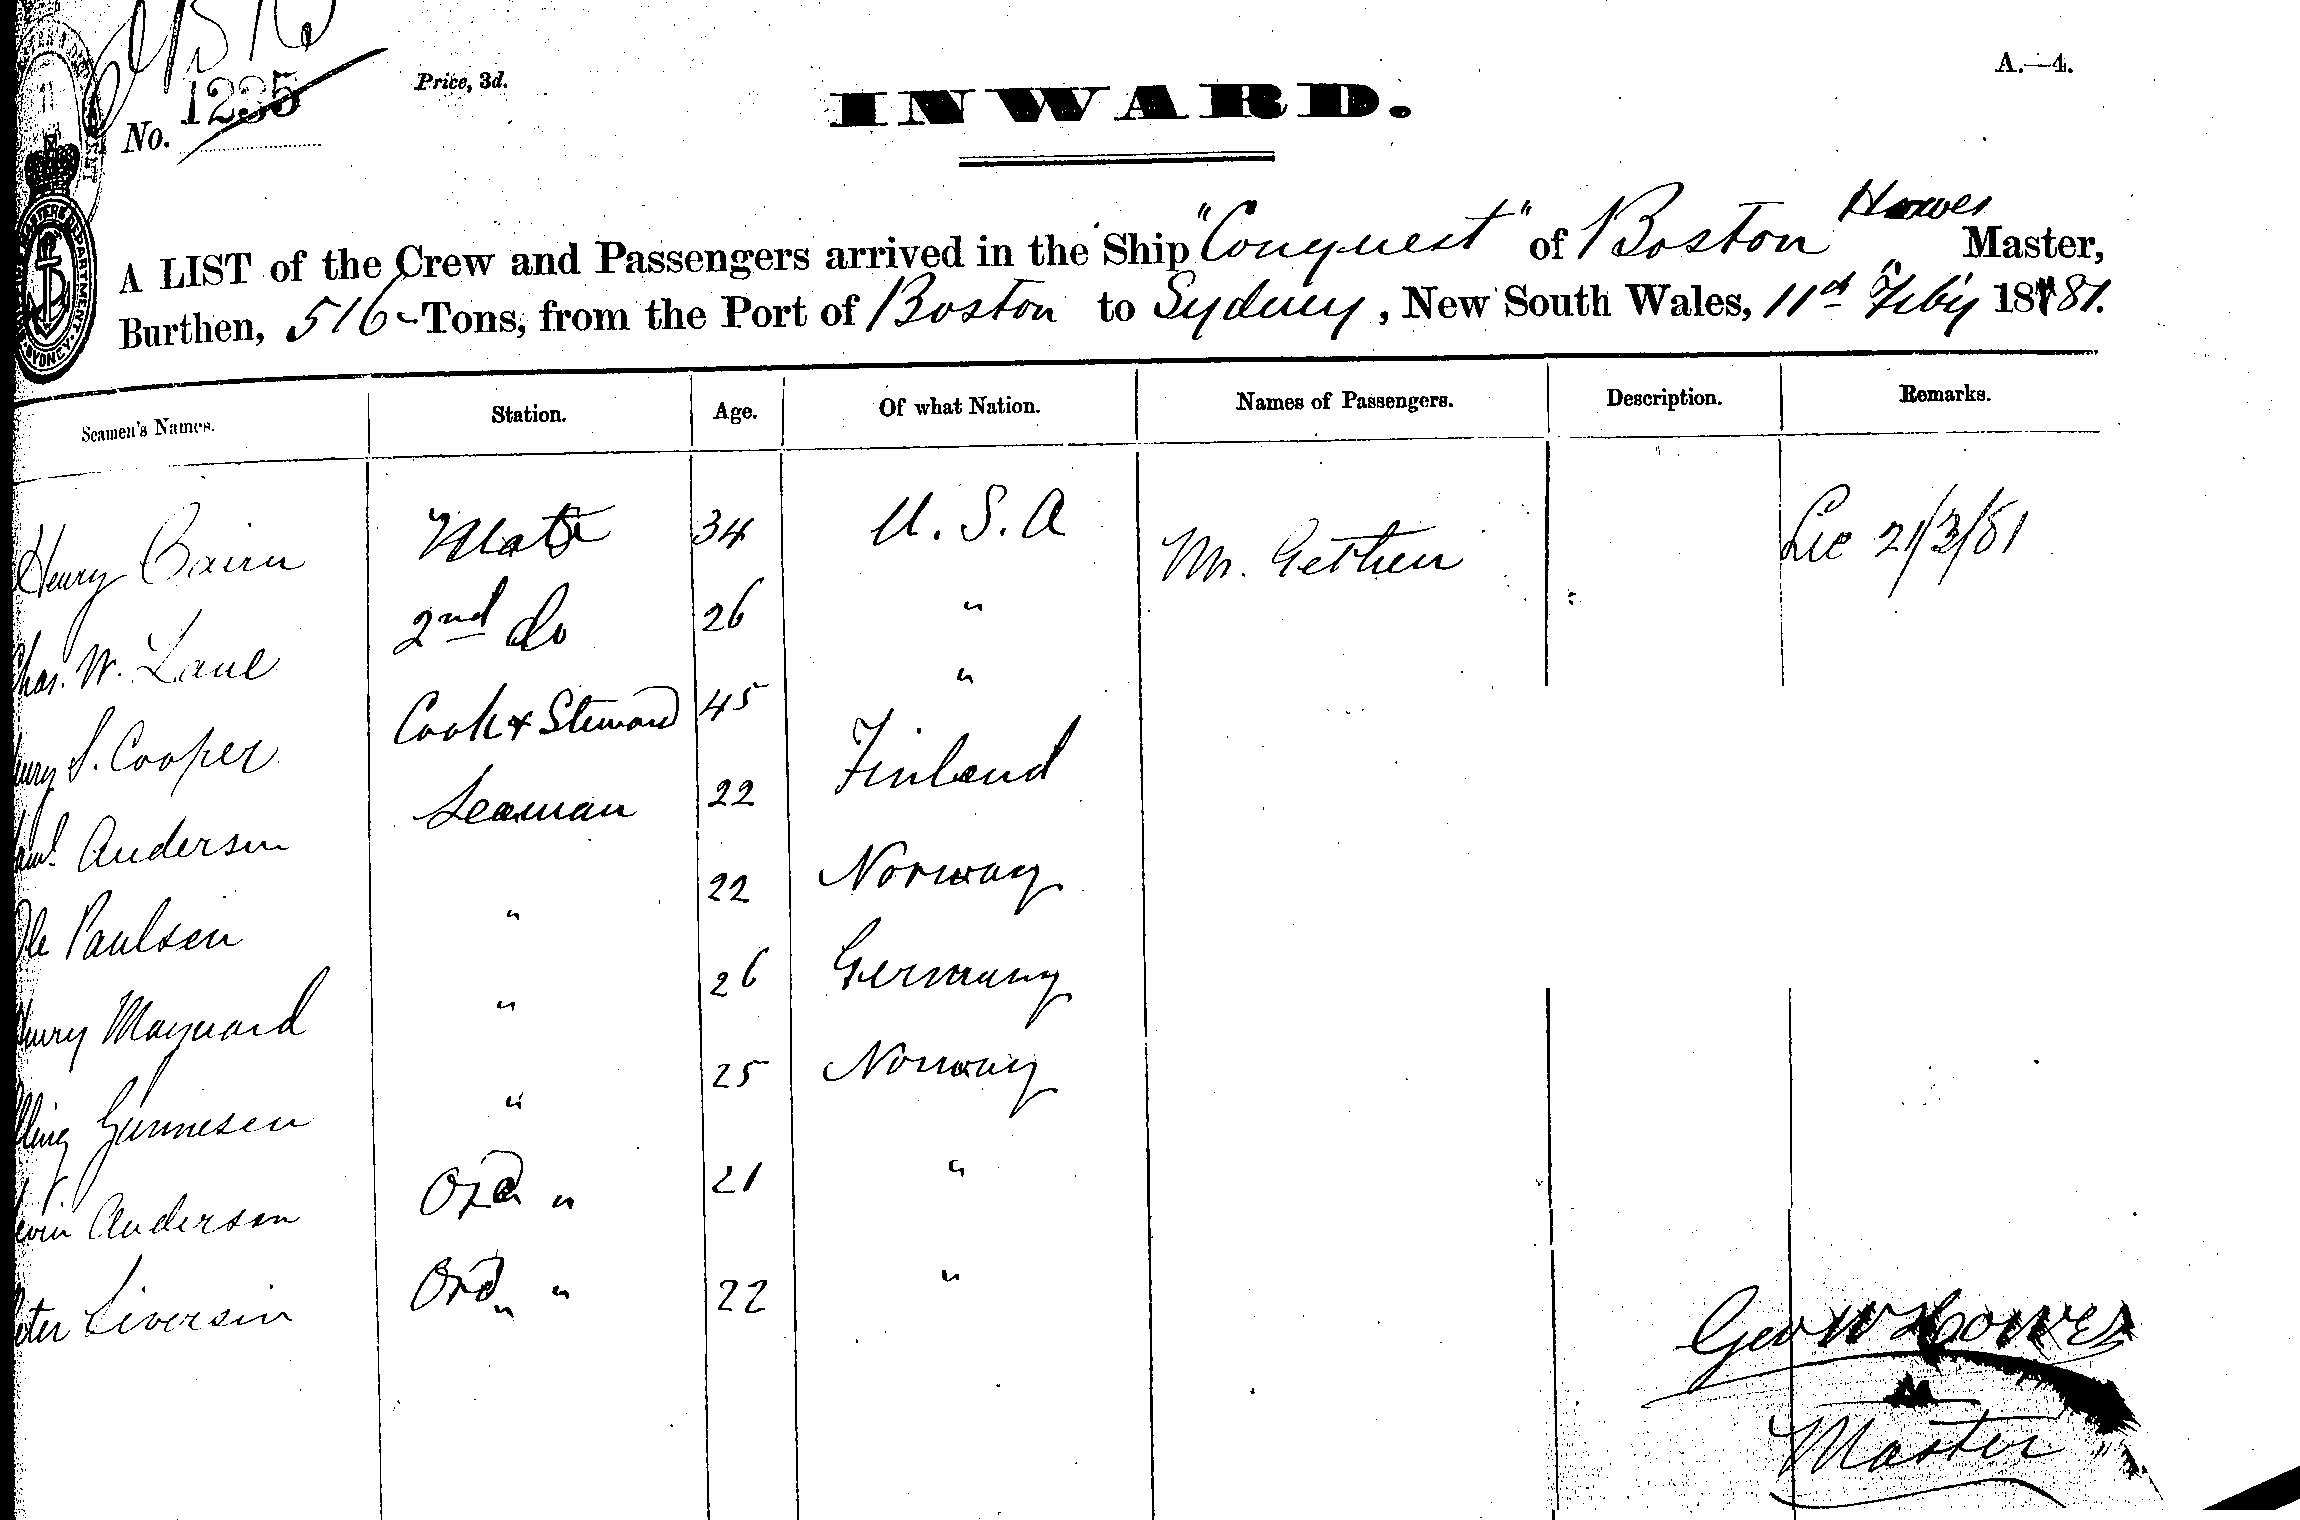 No. 1235
Price, 3d.
A.—4.
INWARD.
Howes
A LIST of the Crew and Passengers arrived in the Ship "Conquest" of Boston Master,
Burthen, 516 Tons, from the Port of Boston to Sydney, New South Wales, 11th Feby 1881.
Seamen's Names. Station. Age. Of what Nation. Names of Passengers. Description. Remarks.
Henry Bairn Mate 34 U.S.A Mr. Gethen 21/3/81
Chas. W. Lane 2nd do 26 "
S. Cooper Cook & Steward 45 "
Saml. Anderson Seaman 22 Finland
Ole Paulsen " 22 Norway
Henry Maynard " 26 Germany
Gunnesen " 25 Norway
Anderson Ord " 21 "
Peter Liversin Ord " 22 "
Geo W Howes
Master